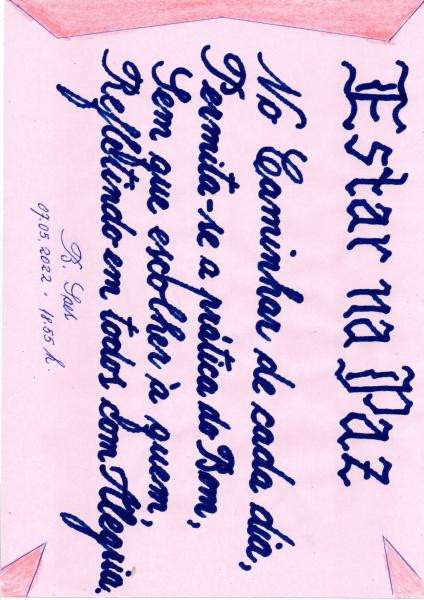 Estar na Paz
No Caminhar de cada dia,
Permita-se a prática do Bem,
Sem que escolher à quem,
Refletindo em todos com Alegria.
B.
07.05.2022 . 18:55 h.